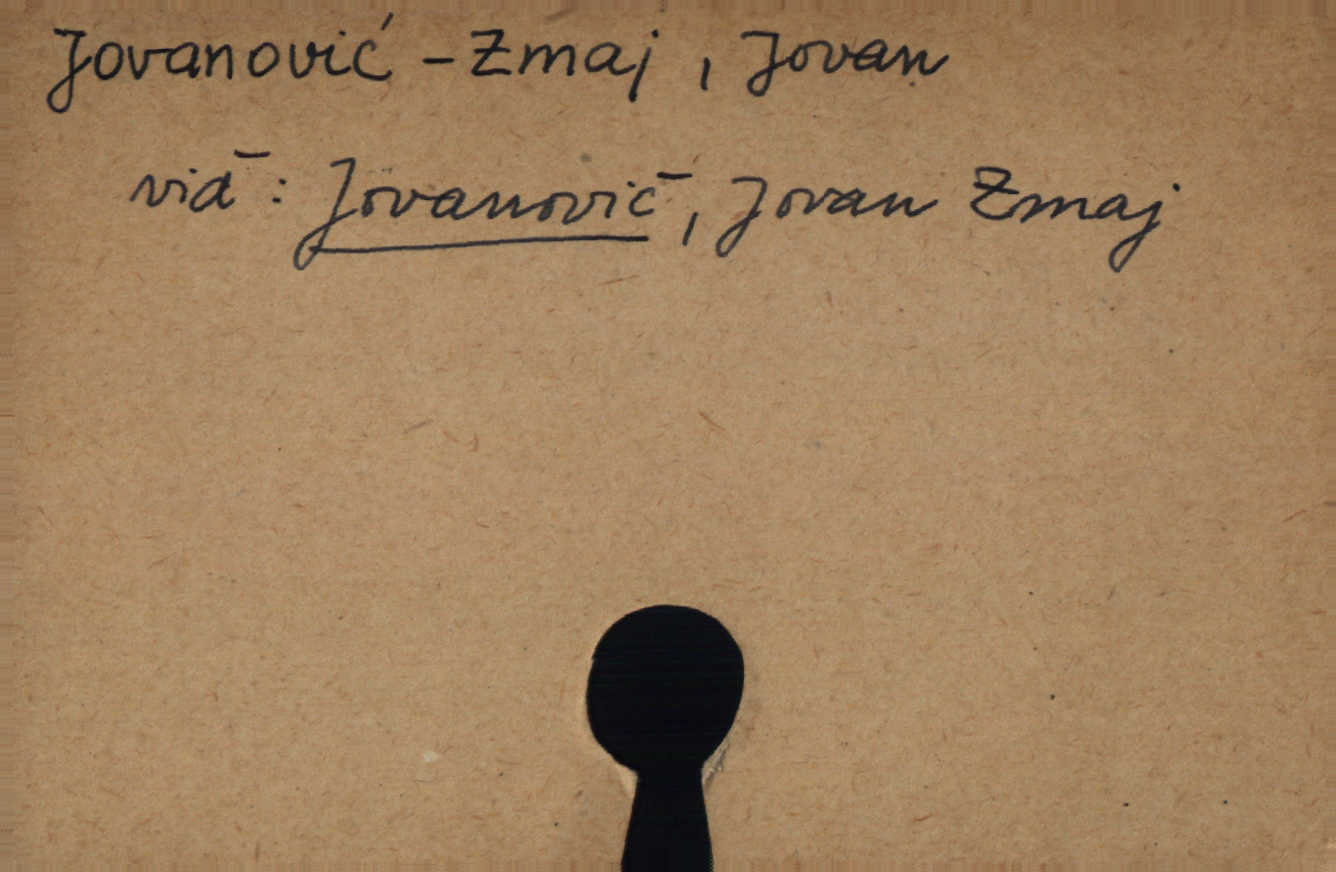 Jovanović - Zmaj, Jovan
viď: Jovanović, Jovan Zmaj